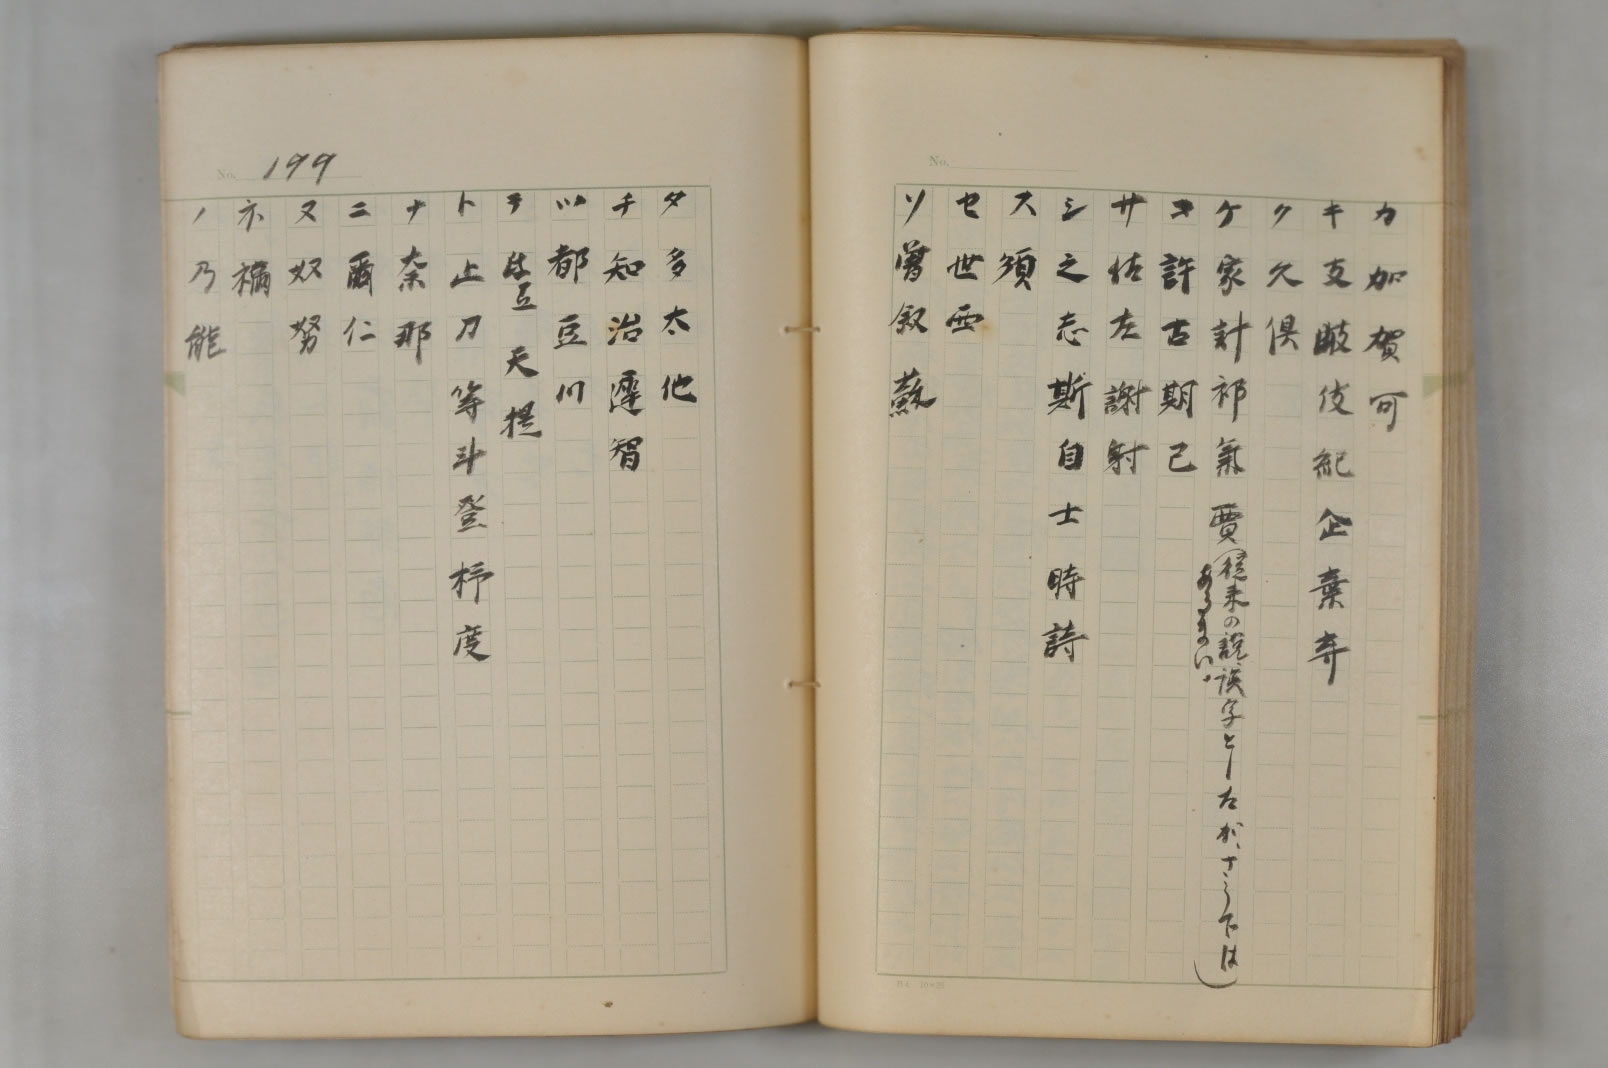 No.
カ加賀可
キ支岐伎紀企棄寄
ク久倶
ケ家計祁氣賈(従来の説誤字としたが、さうでは
あるまい。)
コ許古期己
サ佐左謝射
シ之志斯自士時詩
ス須
セ世西
ソ曽叙蘇
No. 199
タ多太他
チ知治遲智
ツ都豆川
テ弖天提
ト止刀等斗登杼度
ナ奈那
ニ爾仁
ヌ奴努
ネ禰
ノ乃能